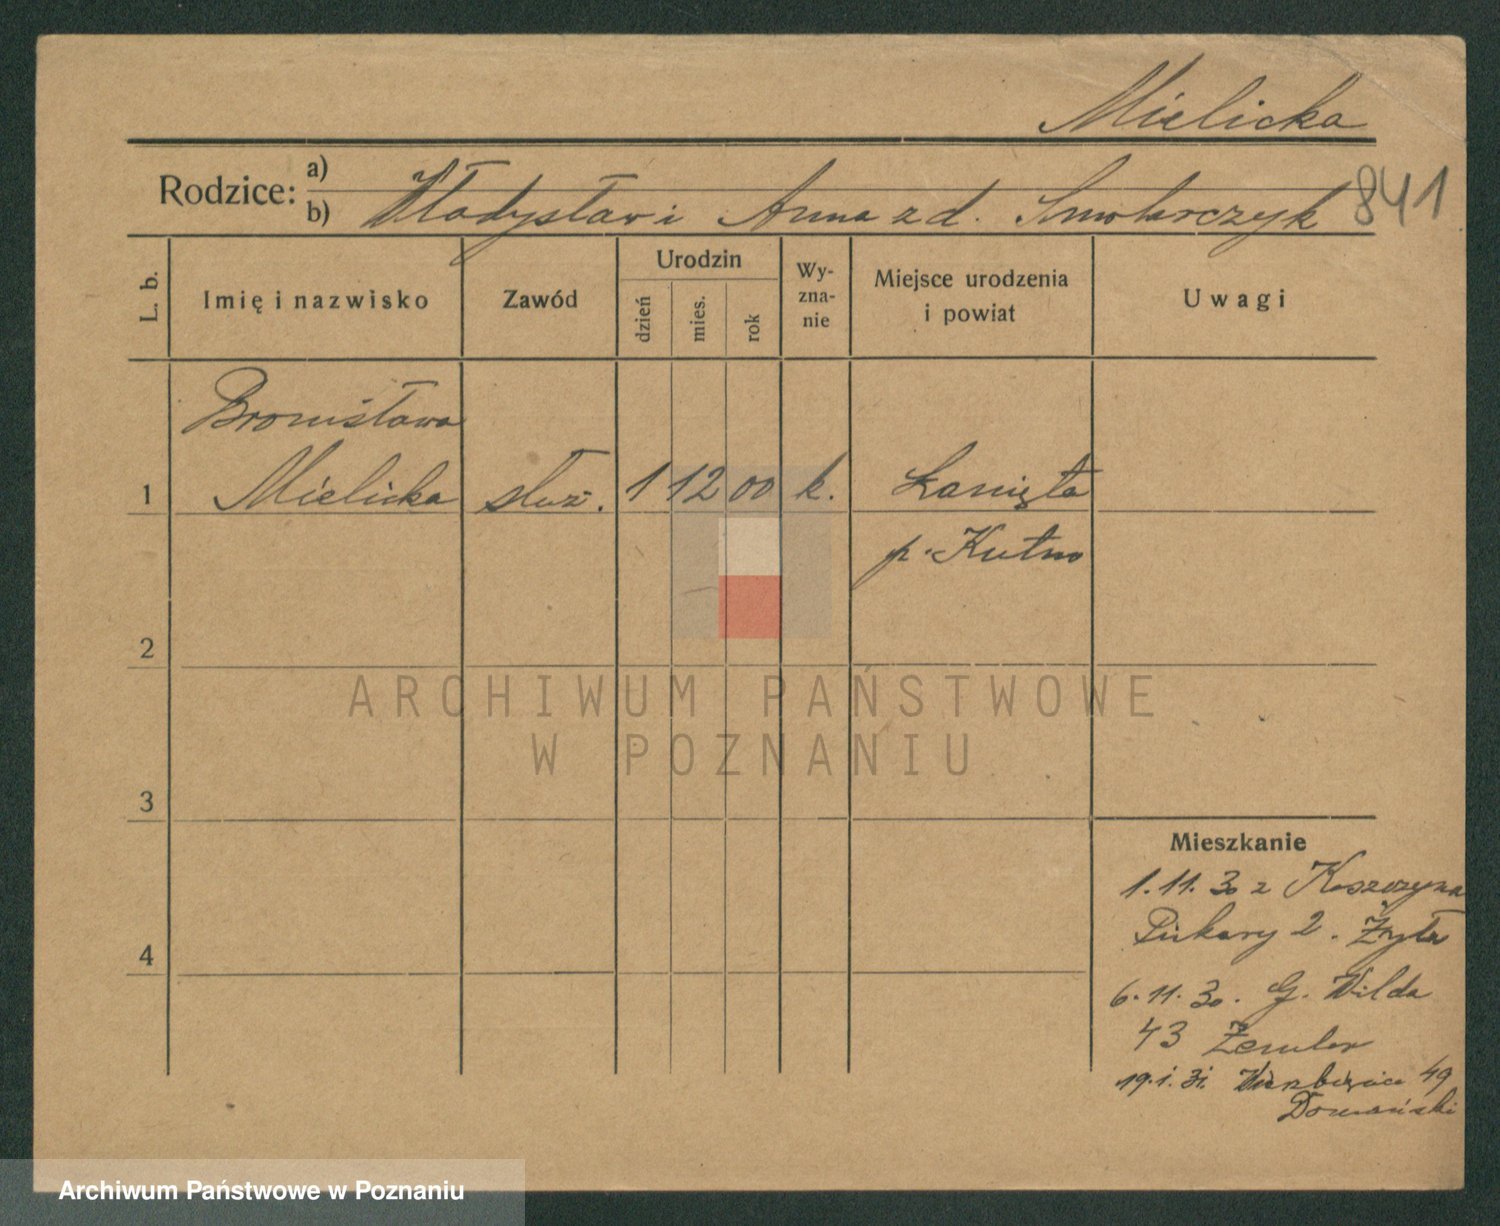 Mielicka
Rodzice: a)
b) Władysław i Anna z d. Smolarczyk 841
L. b. Imię i nazwisko Zawód Urodzin dzień mies. rok Wy-zna-nie Miejsce urodzenia i powiat Uwagi
Bronisława
1 Mielicka służ. 1 12 00 k. Łanięta
p. Kutno
2
ARCHIWUM PAŃSTWOWE
W POZNANIU
3
Mieszkanie
1.11.30 z
Piekary 2.
4
6.11.30. G. Wilda
43
19.1.31. Wierzbięcice 49
Domański
Archiwum Państwowe w Poznaniu